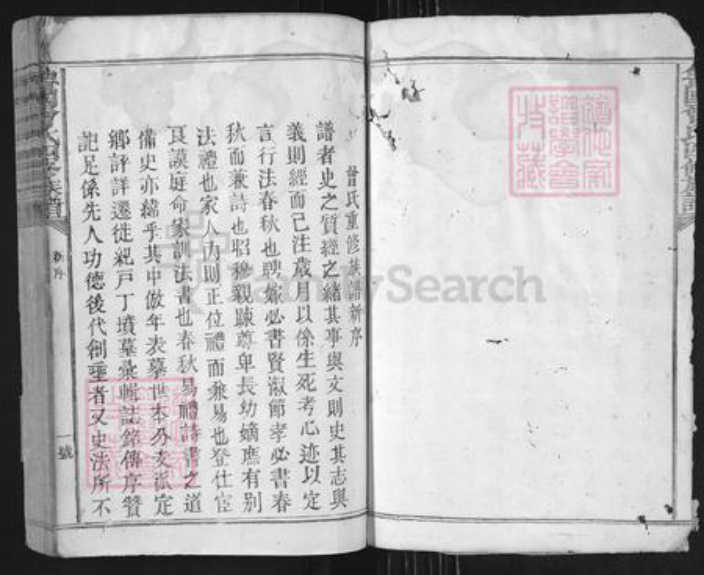 曾氏重修族譜新序
譜者史之質經之緒其事與文則史其志與
義則經而已注歲月以係生死考心迹以定
言行法春秋也聘嫁必書賢淑節孝必書春
秋而兼詩也昭穆親疎尊卑長幼嫡庶有別
法禮也家人內則正位禮而兼易也登仕宦
良謨庭命家訓法書也春秋易禮詩書之道
備史亦緯乎其中倣年表摹世本外支派定
鄉評詳遷徙紀戶丁墳墓彙輯誌銘傳序贊
記足係先人功德後代創垂者又史法所不
新序
一號
氏四修族譜
FamilySearch